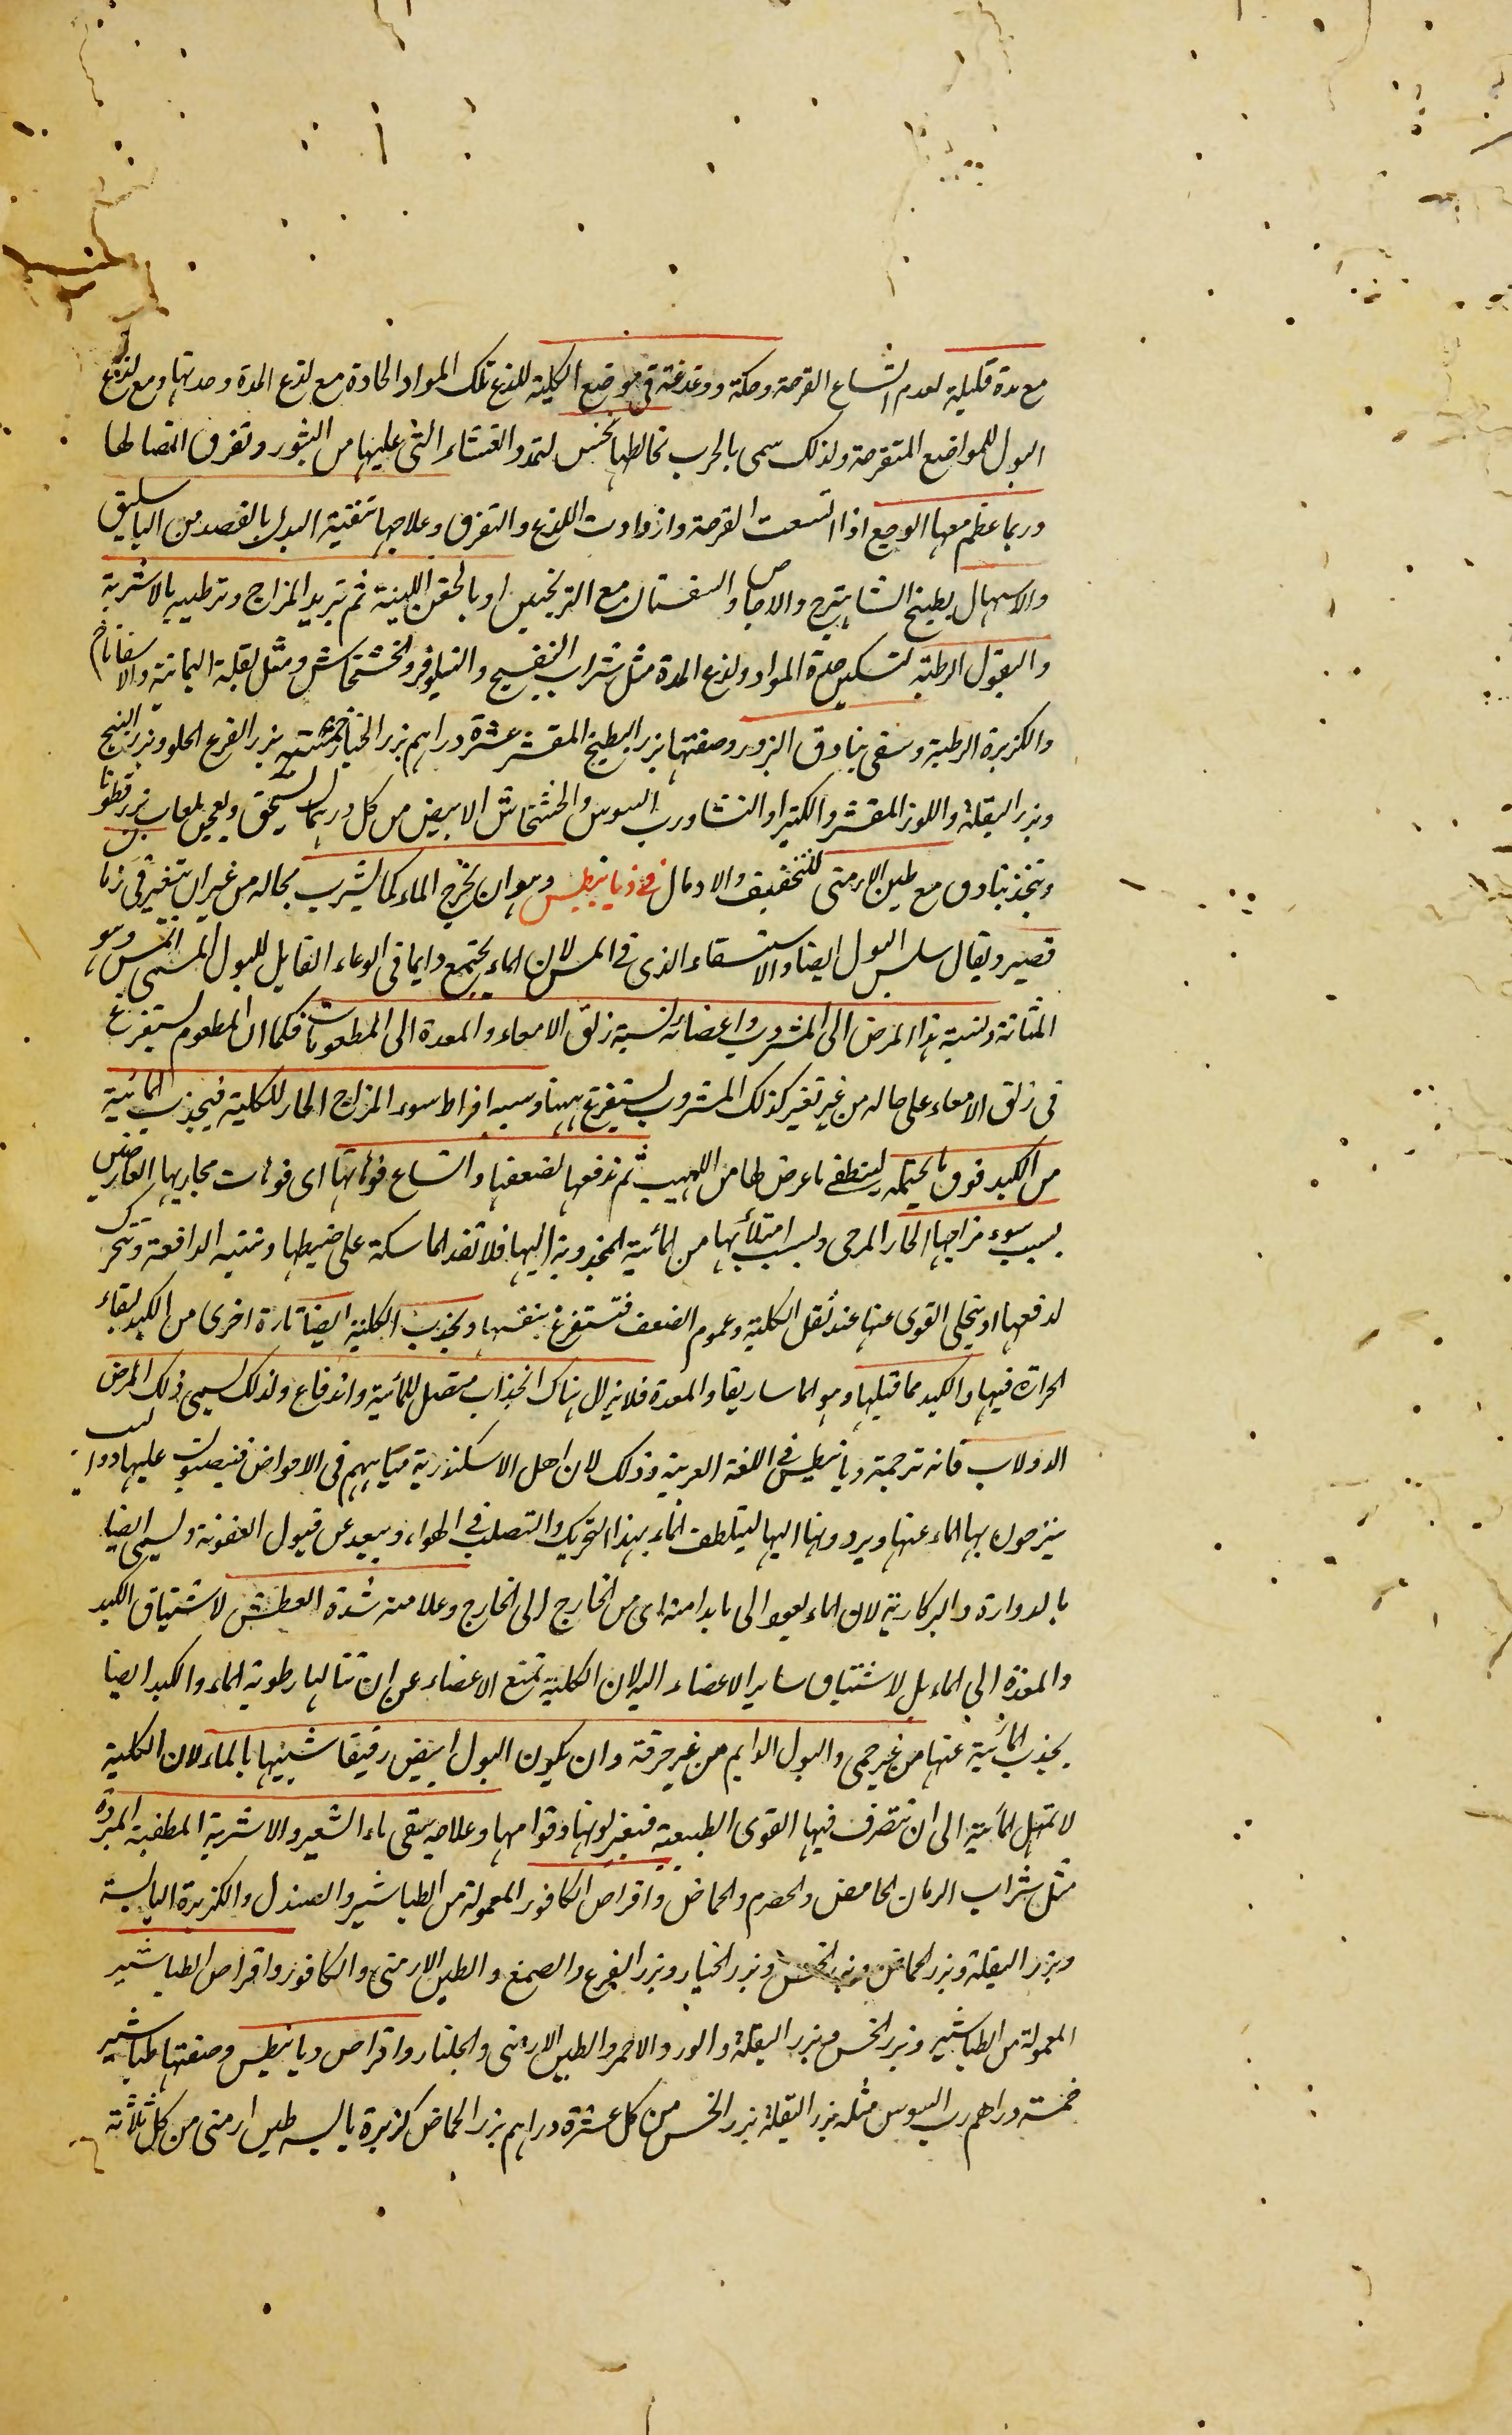 مع مدة قليلة لعدم اتساع القرحة وحكة ودغدغة فى موضع الكلية للذع تلك المواد الحادة مع لذع المدة وحدتها ومع لذع
البول للمواضع المتقرحة ولذلك سمى بالجرب يخالطها نخس لتمدد الغشاء التى عليها من البثور وتفرق اتصالها
وربما عظم معها الوجع اذا اتسعت القرحة وازدادت اللذع والتفرق وعلاجها تنقية البدن بالفصد من الباسليق
والاسهال بطبيخ الشاهترج والاجاص والسفستان مع الترنجبين او بالحقن اللينة ثم تبريد المزاج وترطيبه بالاشربة
والبقول الرطبة لتسكين حدة المواد ولذع المدة مثل شراب البنفسج والنيلوفر والخشخاش ومثل بقلة اليمانية والاسفاناخ
والكزبرة الرطبة وسقى بنادق البزور وصفتها بزر البطيخ المقشر عشرة دراهم بزر الخيار خمسة بزر القرع الحلو وبزر البنج
وبزر البقلة واللوز المقشر والكثيرا والنشا ورب السوس والخشخاش الابيض من كل درهمان يسحق ويعجن بلعاب بزر قطونا
ويتخذ بنادق مع طين الارمنى للتجفيف والادمال فى ذيانيطس وهو ان يخرج الماء كما يشرب بحاله من غير ان يتغير فى زمان
قصير ويقال سلس البول ايضا والاستسقاء الذى فى المس لان الماء يجتمع دايما فى الوعاء القابل للبول المسمى انمس وهو
المثانة ونسبة هذا المرض الى المشروب واعضائه نسبة زلق الامعاء والمعدة الى المطعومات فكما ان المطعوم يستفرغ
فى زلق الامعاء على حاله من غير تغير كذلك المشروب يستفرغ ههنا وسببه افراط سوء المزاج الحار للكلية فيجذب المائية
من الكبد فوق ما يحتمله لينطفى ما عرض لها من اللهيب ثم تدفعها لضعفها واتساع فوهاتها اى فوهات مجاريها العارضين
بسبب سوء مزاجها الحار المرخى وبسبب امتلائها من المائية المجذوبة اليها فلا تقدر الماسكة على ضبطها وتنتبه الدافعة وتتحرك
لدفعها او يتخلى القوى عنها عند ثقل الكلية وعموم الضعف فتستفرغ بنفسها ويجذب الكلية ايضا تارة اخرى من الكبد لبقاء
الحرارة فيها والكبد مما قبلها وهو الماساريقا والمعدة فلا يزال هناك انجذاب متصل للمائية واندفاع ولذلك يسمى ذلك المرض
الدولاب فانه ترجمة ديانيطس فى اللغة العربية وذلك لان اهل الاسكندرية مياههم فى الاحواض فينصبون عليها دواليب
ينزحون بها الماء عنها ويردونها اليها ليتلطف الماء بهذا التحريك والتصلب فى الهواء ويبعد عن قبول العفونة ويسمى ايضا
بالدوارة والبركارية لان الماء يعود الى ما بدا منه اى من الخارج الى الخارج وعلامته شدة العطش لاشتياق الكبد
والمعدة الى الماء بل لاشتياق ساير الاعضاء اليه لان الكلية تمنع الاعضاء عن ان تنالها رطوبة الماء والكبد ايضا
يجذب المائية عنها من غير حمى والبول الدايم من غير حرقة وان يكون البول ابيض رقيقا شبيها بالماء لان الكلية
لا تمهل المائية الى ان تتصرف فيها القوى الطبيعية فتغير لونها وقوامها وعلاجه سقى ماء الشعير والاشربة المطفية المبردة
مثل شراب الرمان الحامض والحصرم والحماض واقراص الكافور المعمولة من الطباشير والصندل والكزبرة اليابسة
وبزر البقلة وبزر الحماض وبزر الخس وبزر الخيار وبزر القرع والصمغ والطين الارمنى والكافور واقراص الطباشير
المعمولة من الطباشير وبزر الخس وبزر البقلة والورد الاحمر والطين الارمنى والجلنار واقراص ديانيطس وصفتها طباشير
خمسة دراهم رب السوس مثله بزر البقلة بزر الخس من كل عشرة دراهم بزر الحماض كزبرة يابسه طين ارمنى من كل ثلاثة